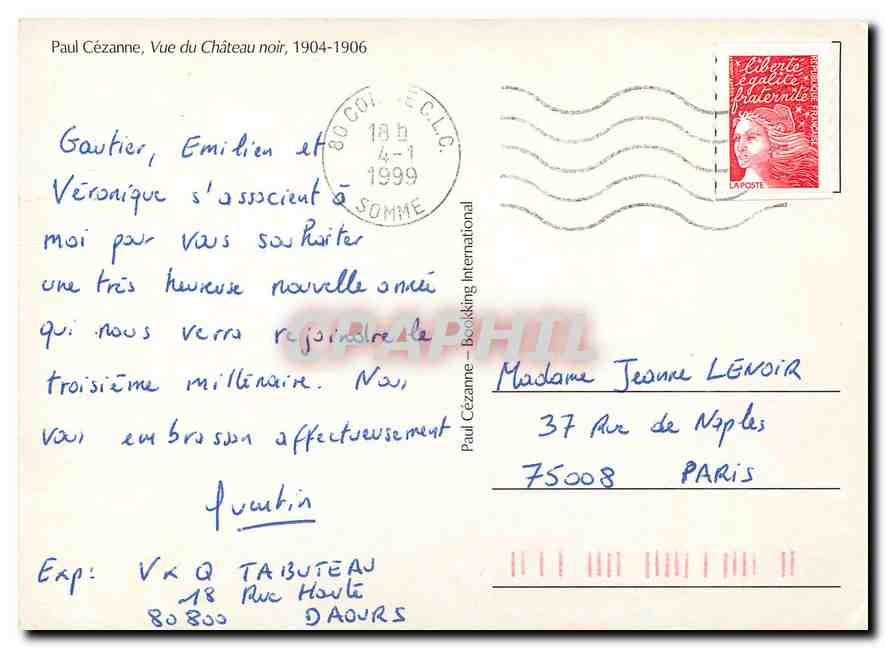 Paul Cézanne, Vue du Château noir, 1904-1906
Gautier, Emilien et
Véronique s'associent à
moi pour vous souhaiter
une très heureuse nouvelle année
qui nous verra rejoindre le
troisième millénaire. Nous
vous embrasson affectueusement
Quentin
Exp: V & Q TABUTEAU
18 Rue Haute
80800 DAOURS
80 C.L.C.
18 h
4-1
1999
SOMME
liberté
égalité
fraternité
RÉPUBLIQUE FRANÇAISE
LA POSTE
Paul Cézanne – Bookking International
Madame Jeanne LENOIR
37 Rue de Naples
75008 PARIS
CPAPHIL